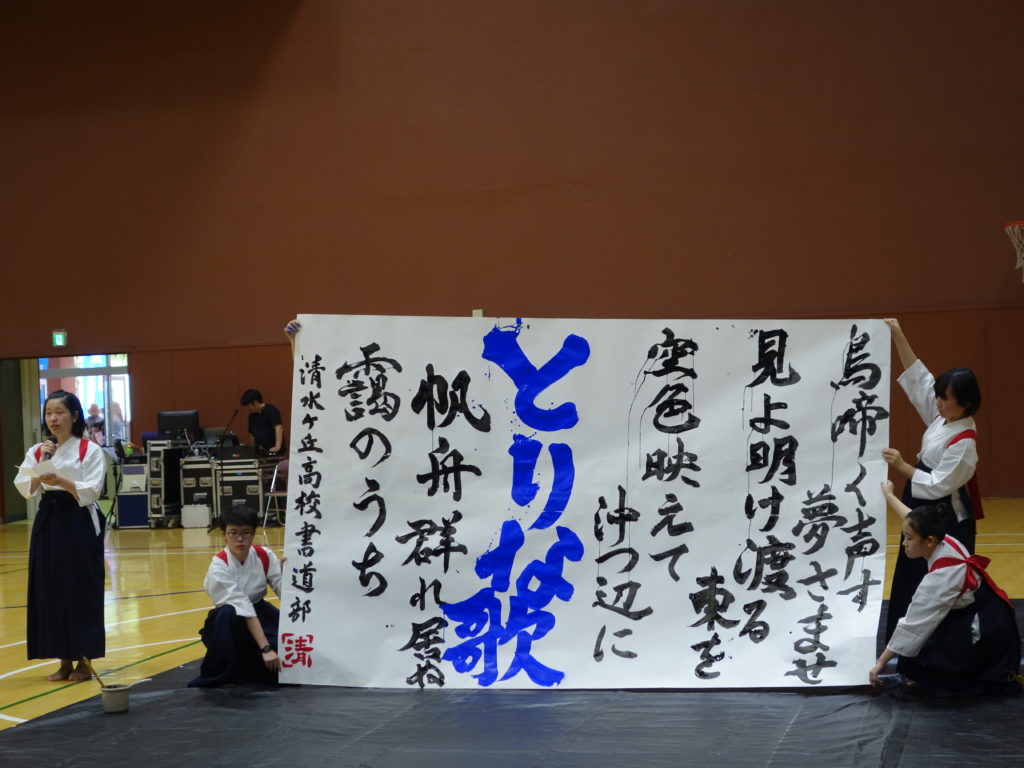 鳥啼く声す
夢さませ
見よ明け渡る
東を
空色映えて
沖つ辺に
とりな歌
帆舟群れ居ぬ
靄のうち
清水ヶ丘高校書道部
清